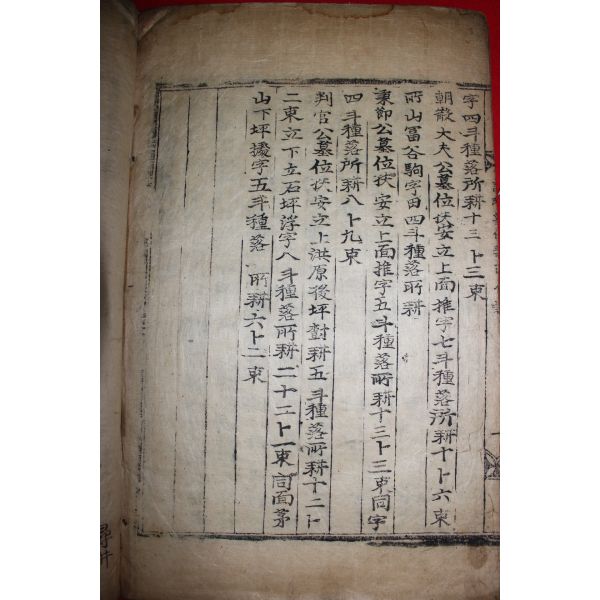 字四斗種落所耕十三卜三束
朝散大夫公墓位扶安立上面推字七斗種落所耕十卜六束
所山冨谷駒字田四斗種落所耕
秉節公墓位扶安立上面推字五斗種落所耕十三卜三束同字
四斗種落所耕八卜九束
判官公墓位扶安立上洪原後坪對耕五斗種落所耕十二卜
二束立下立石坪浮字八斗種落所耕二十二卜一束同面茅
山下坪 字五斗種落所耕六卜二束